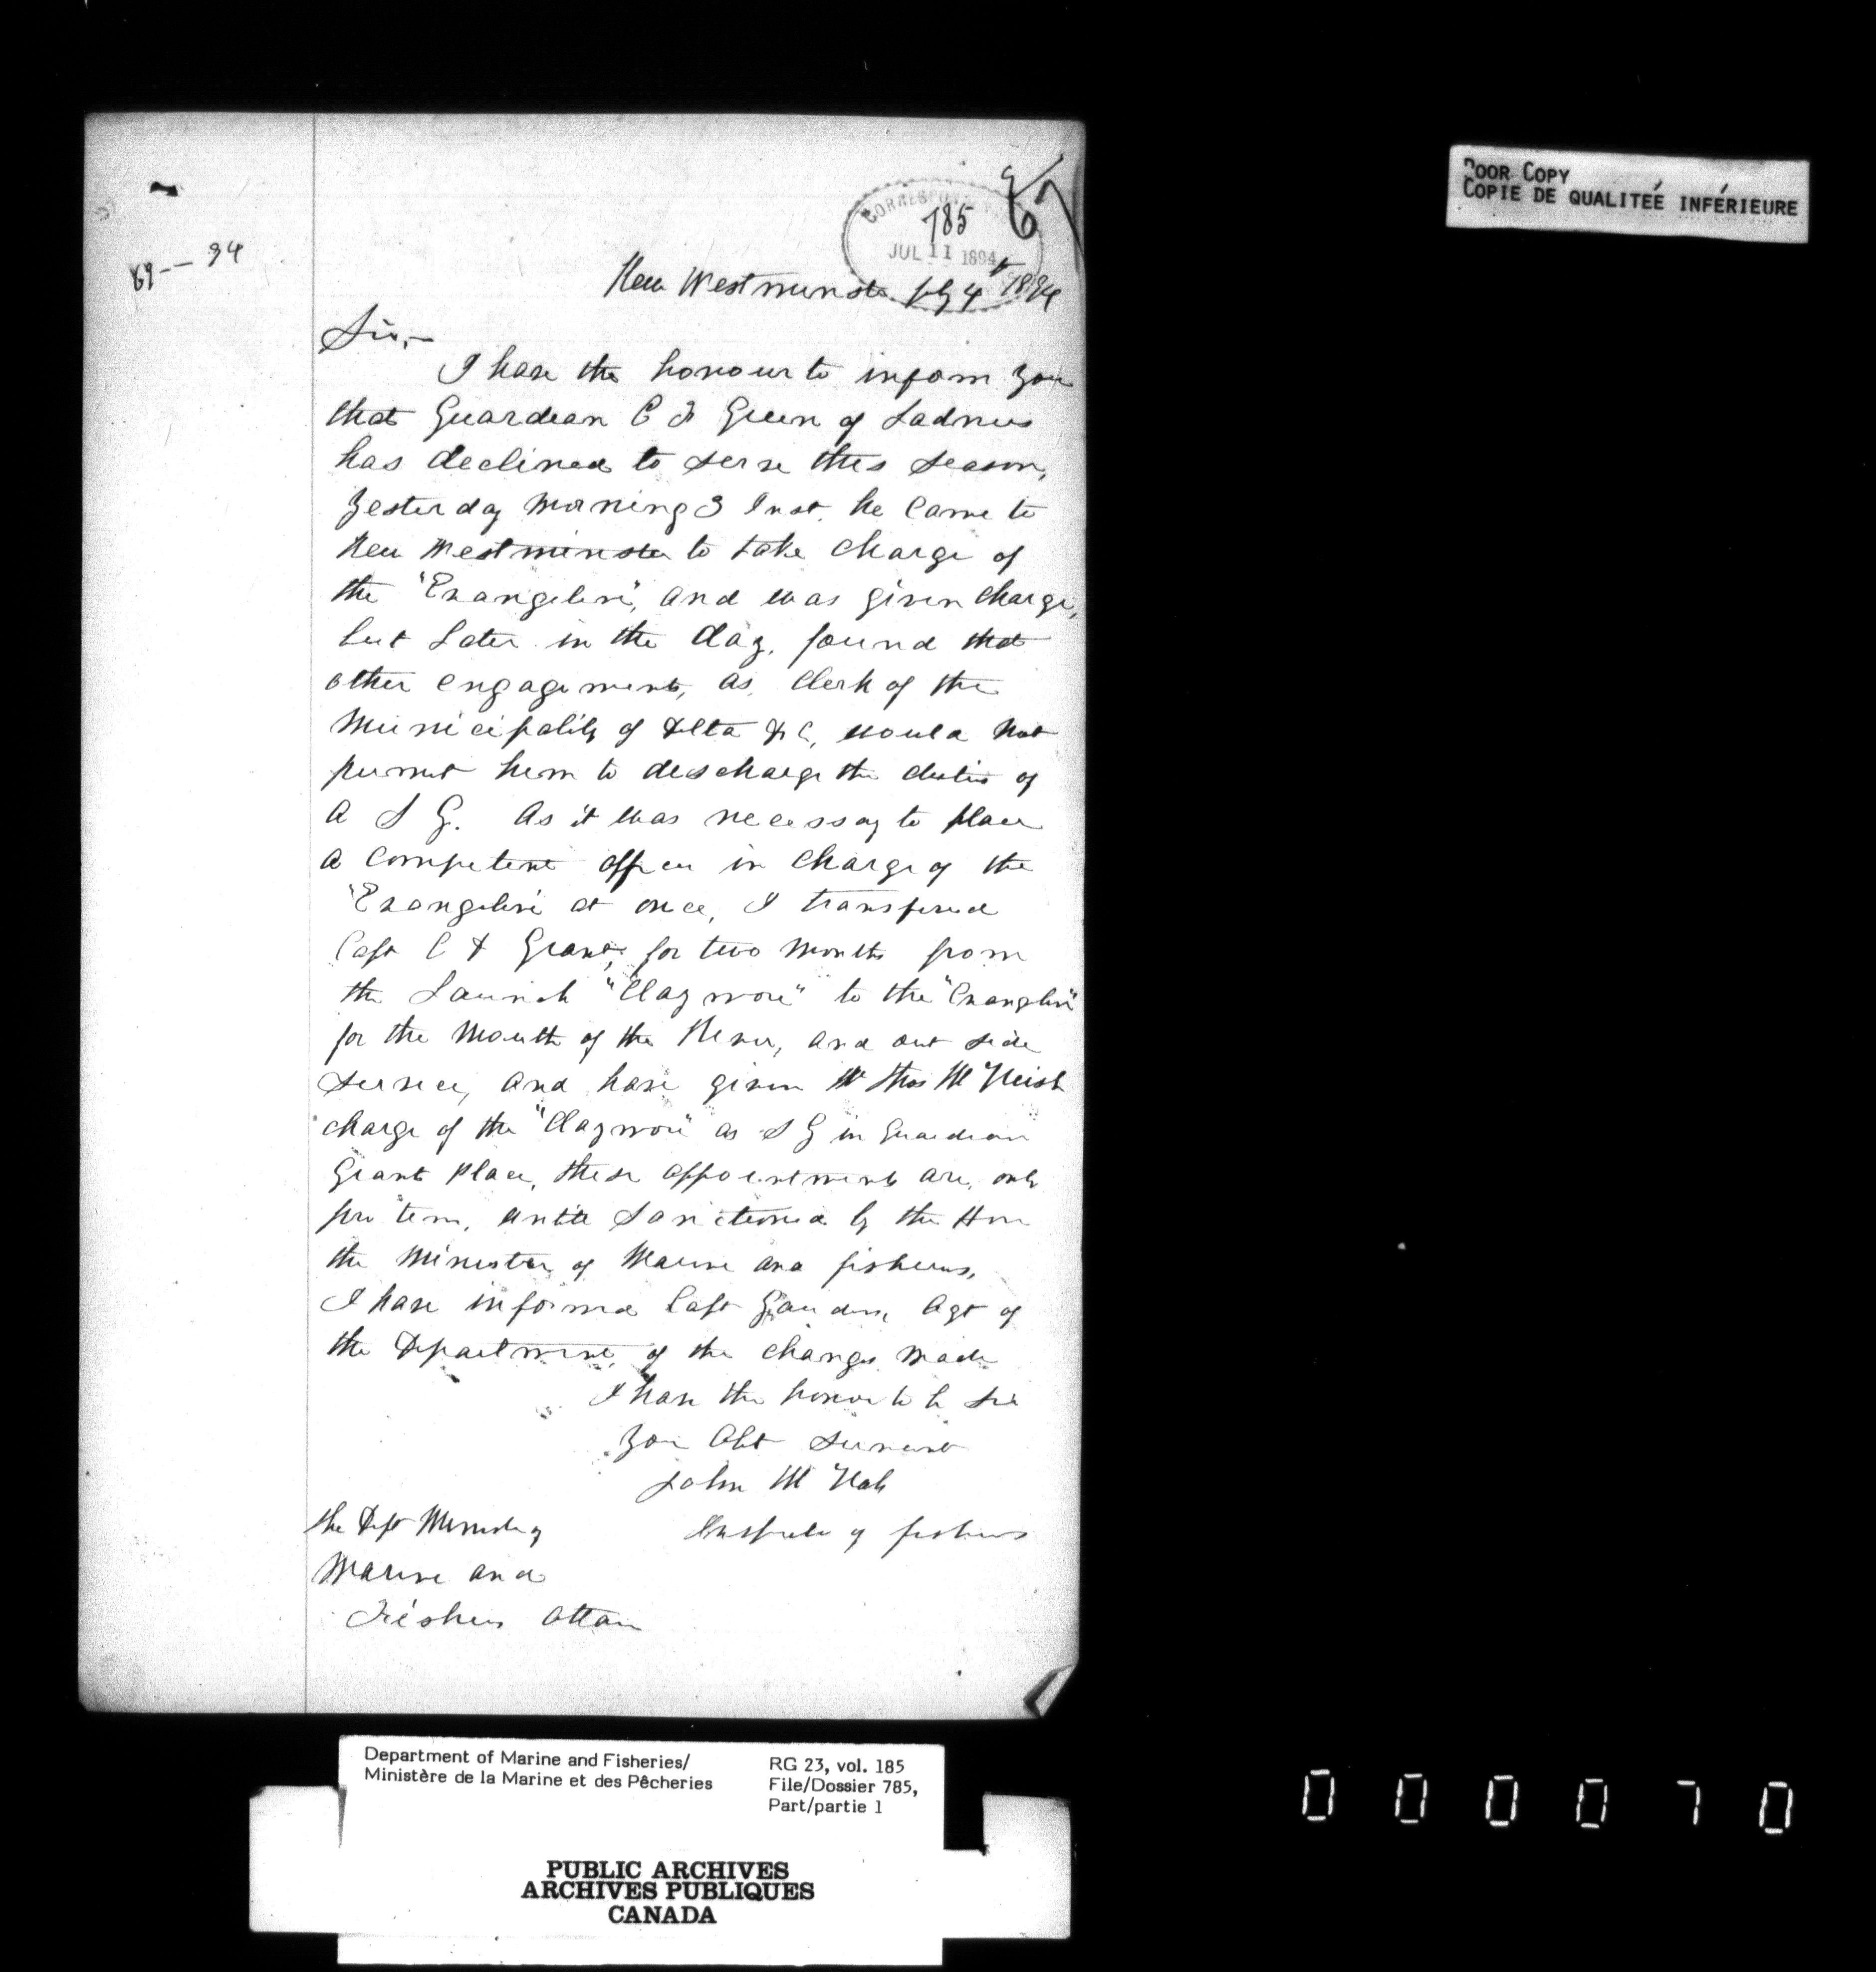 POOR COPY
COPIE DE QUALITEÉ INFÉRIEURE
67
CORRESPON
785
JUL 11 1894
69 -- 94
New Westminster July 4th 1894
Sir,-
I have the honour to inform you
that Guardian C F Green of Ladners
has declined to serve this season,
Yesterday morning 3 Inst. he came to
New Westminster to take charge of
the "Evangeline", and was given charge,
but later in the day, found that
other engagements, as, Clerk of the
Municipality of Delta &c, would not
permit him to discharge the duties of
a F G. As it was necessary to place
a competent officer in charge of the
"Evangeline at once, I transfered
Capt C F Grant, for two months from
the Launch "Claymore" to the "Evangeline"
for the Mouth of the River, and out side
service, and have given Mr Thos McNeish
charge of the "Claymore" as F G in Guardian
Grants place, these appointments are, only
pro tem, until sanctioned by the Hon
the Minister of Marine and fisheries,
I have informed Capt Gaudin, Agt of
the Department, of the changes made
I have the honor to be Sir
Your Obt Servant
John McNab
Inspector of fisheries
the Dept Minister of
Marine and
Fisheries Ottawa
Department of Marine and Fisheries/
Ministère de la Marine et des Pêcheries
RG 23, vol. 185
File/Dossier 785,
Part/partie 1
PUBLIC ARCHIVES
ARCHIVES PUBLIQUES
CANADA
000070